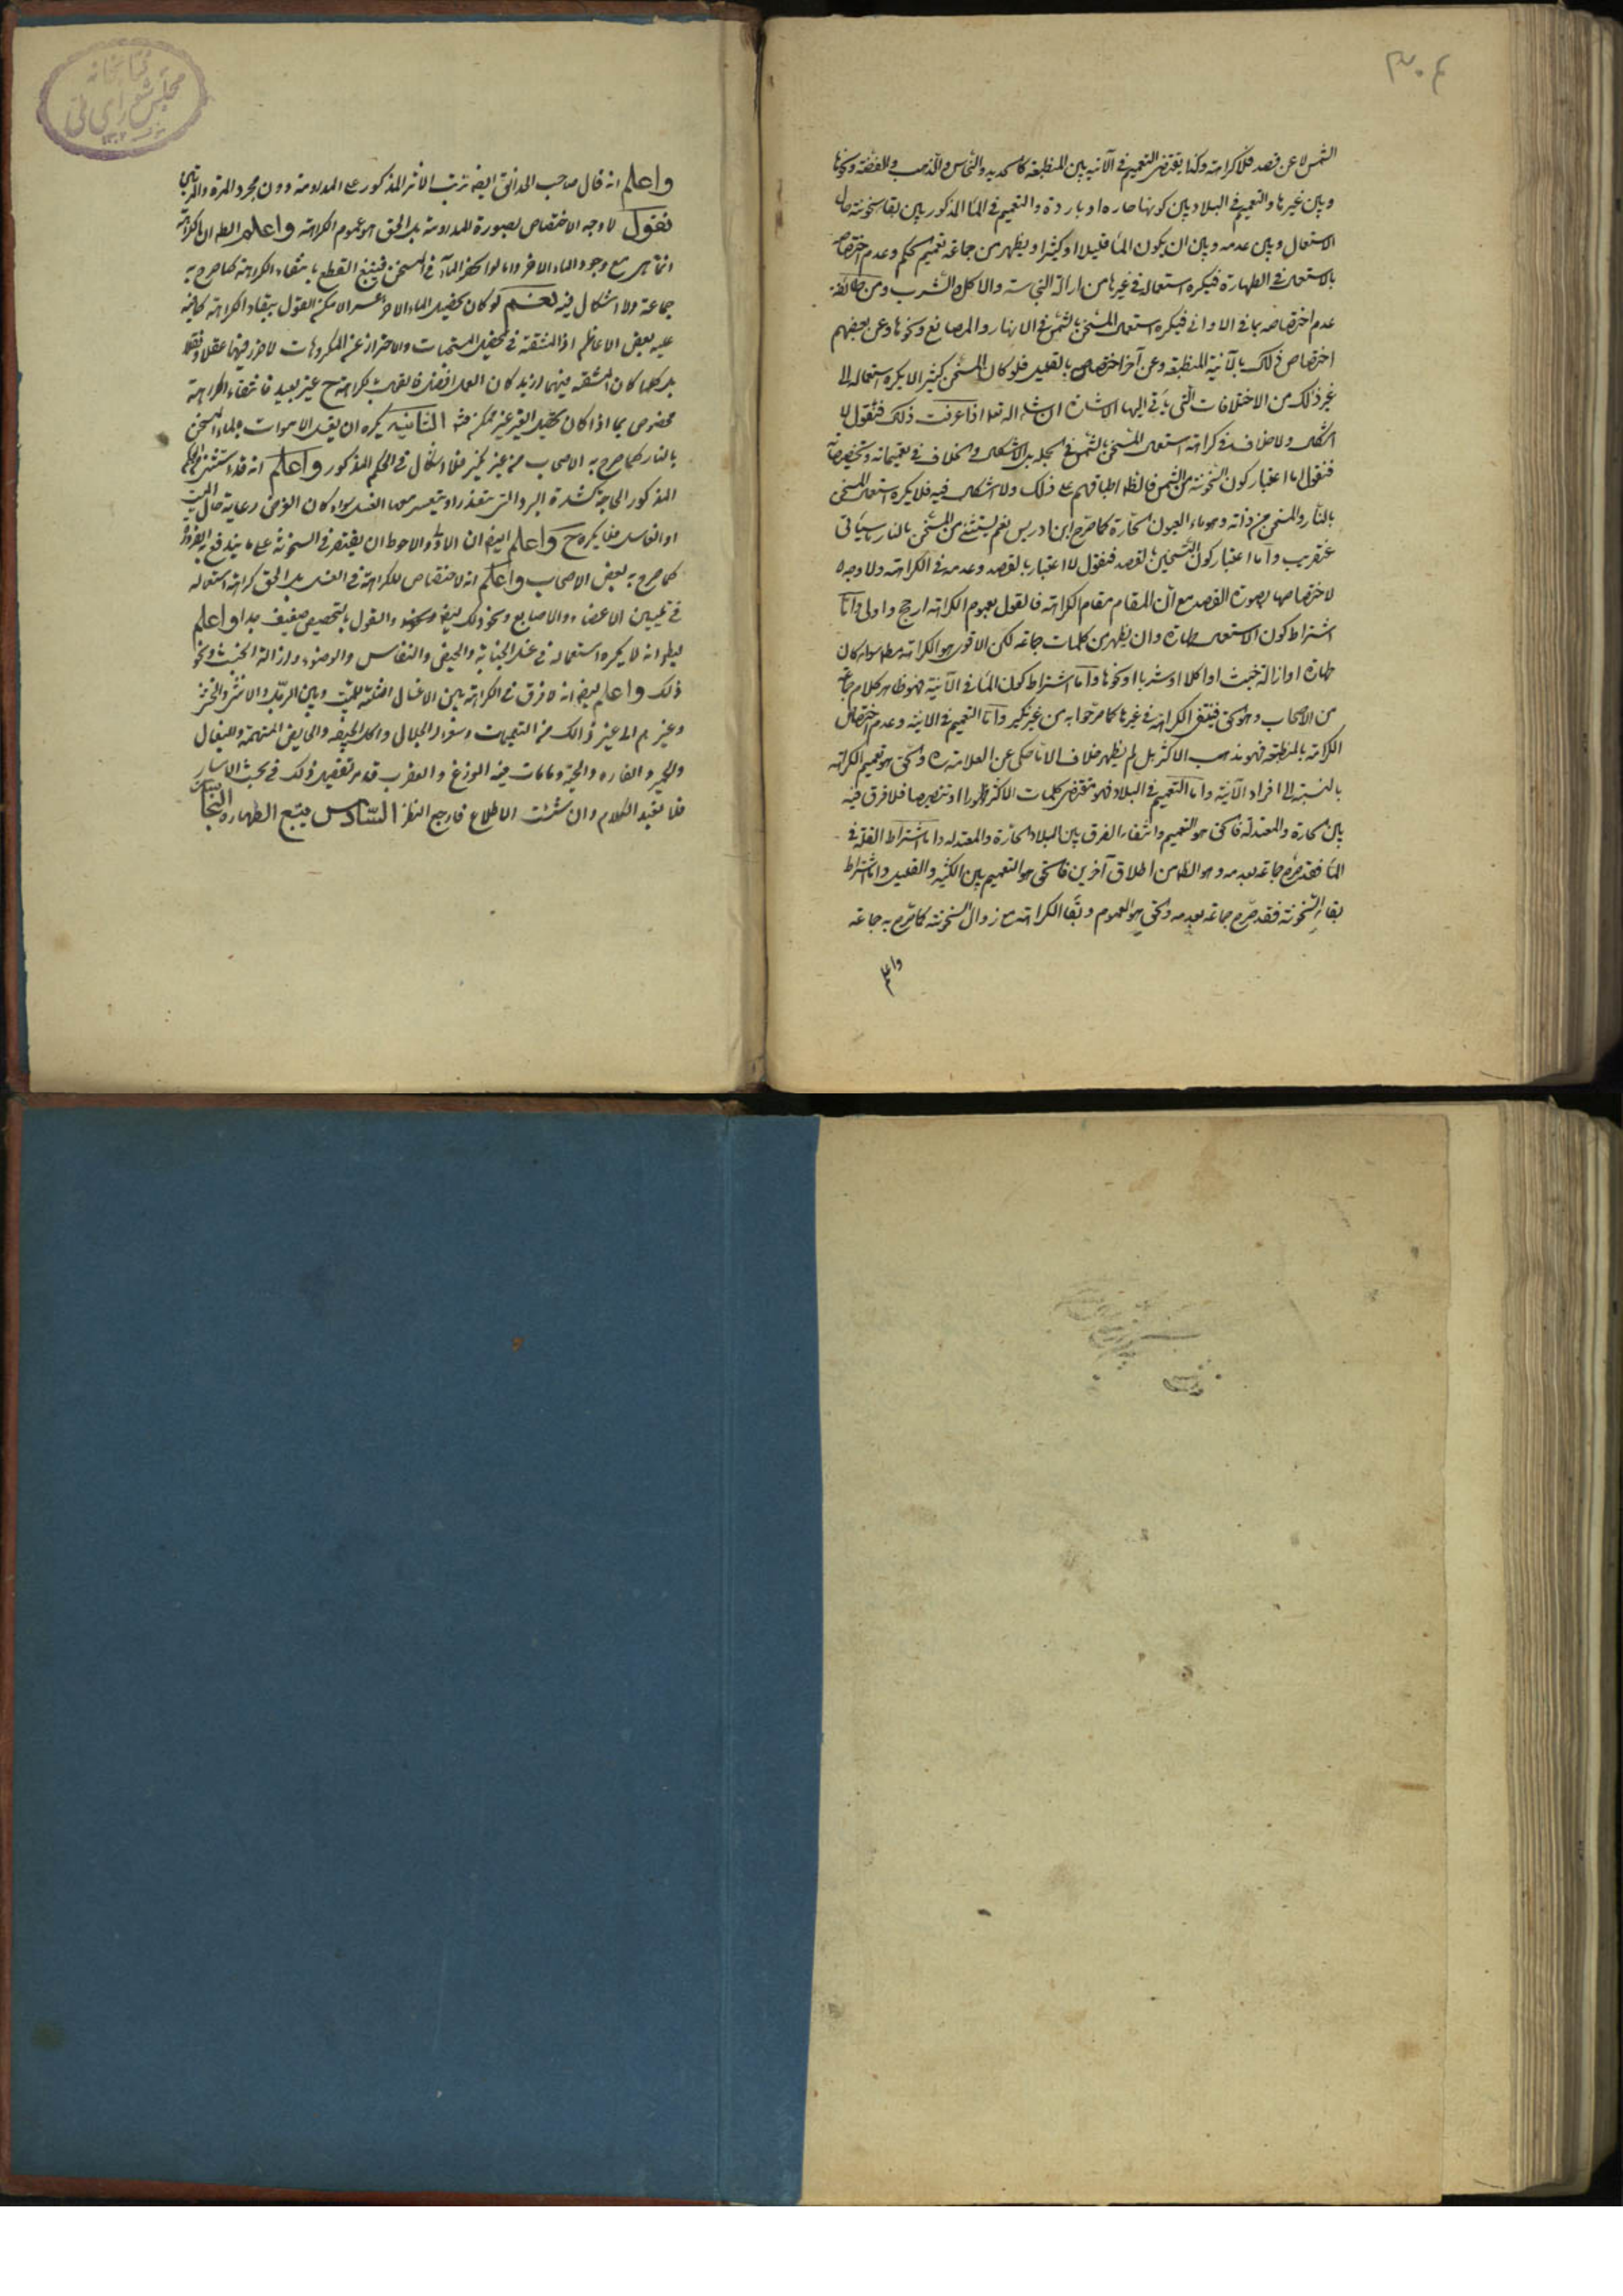 ٣٠٤
الشمس لا عن قصد فلا كراهة وكذا يقتضى التعميم فى الآنيه بين المنطبعة كالحديد والنحاس والذهب والفضة ونحوها
وبين غيرها والتعميم فى البلاد بين كونها حاره او باردة والتعميم فى الماء المذكور بين بقاء سخونته حال
الاستعمال وبين عدمه وبين ان يكون الماء قليلا او كثيرا ويظهر من جماعة تعميم الحكم وعدم اختصاصه
بالاستعمال فى الطهارة فيكره استعماله فى غيرها من ازالة النجاسة والاكل والشرب ومن طائفة
عدم اختصاصه بما فى الاوانى فيكره استعمال المسخن بالشمس فى الانهار والمصانع ونحوها وعن بعضهم
اختصاص ذلك بالآنية المنطبعة وعن آخر اختصاص بالقليل فلو كان المسخن كثيرا لا يكره استعماله الى
غير ذلك من الاختلافات التى ياتى اليها الاشارة انشاء الله تعا اذا عرفت ذلك فنقول لا
اشكال ولا خلاف فى كراهة استعمال المسخن بالشمس فى الجملة بل الاشكال والخلاف فى تعميماته وتخصيصاته
فنقول اما اعتبار كون السخونة من الشمس فالظ اطباقهم على ذلك ولا اشكال فيه فلا يكره استعمال المسخن
بالنار والمسخن من ذاته وهو ماء العيون الحارة كما صرح ابن ادريس نعم يستثنى من المسخن بالنار ما سيأتى
عنقريب واما اعتبار كون التسخين بالقصد فنقول لا اعتبار بالقصد وعدمه فى الكراهة ولا وجه
لاختصاصها بصورة القصد مع ان المقام مقام الكراهة فالقول بعموم الكراهة ارجح واولى واما
اشتراط كون الاستعمال طهارة وان يظهر من كلمات جماعة لكن الاقوى هو الكراهة مط سواء كان
طهارة او ازالة خبث او اكلا او شربا او نحوها واما اشتراط كون الماء فى الآنية فهو ظاهر كلام جماعة
من الاصحاب وهو الحق فينتفى الكراهة فى غيرها كما صرحوا به من غير نكير واما التعميم فى الآنية وعدم اختصاص
الكراهة بالمنطبعة فهو مذهب الاكثر بل لم يظهر خلاف الا ما حكى عن العلامة ره والحق هو تعميم الكراهة
بالنسبة الى افراد الآنية واما التعميم فى البلاد فهو مقتضى كلمات الاكثر ظهورا او تنصيصا فلا فرق فيه
بين الحارة والمعتدلة فالحق هو التعميم وانتفاء الفرق بين البلاد الحارة والمعتدله واما اشتراط القلة فى
الماء فقد صرح جماعة بعدمه وهو الظ من اطلاق آخرين فالحق هو التعميم بين الكثير والقليل واما اشتراط
بقاء السخونة فقد صرح جماعة بعدمه والحق هو العموم وبقاء الكراهة مع زوال السخونة كما صرح به جماعة
واعلم
كتابخانه
مجلس شوراى ملى
واعلم انه قال صاحب الحدائق ايضا ترتب الاثر المذكور على المداومة دون مجرد المرة والمرتين
فنقول لا وجه الاختصاص بصورة المداومة بل الحق هو عموم الكراهة واعلم الظ ان الكراهة
انما هى مع وجود الماء الاخر واما لو انحصر الماء فى المسخن فينبغى القطع بانتفاء الكراهة كما صرح به
جماعة ولا اشكال فيه نعم لو كان تحصيل الماء الاخر اعسر لامكن القول ببقاء الكراهة كما نبه
عليه بعض الاعاظم اذ المشقة فى تحصيل المستحبات والاحتراز عن المكروهات لا ضرر فيها عقلا ونقلا
بل كلما كان المشقة فيهما ازيد كان العمل افضل فالقول بكراهة ح غير بعيد فانتفاء الكراهة
مخصوص بما اذا كان تحصيل الغير غير ممكن منه الثانية يكره ان يغسل الاموات بالماء المسخن
بالنار كما صرح به الاصحاب من غير نكير فلا اشكال فى الحكم المذكور واعلم انه قد استثنى من الحكم
المذكور الحاجة كشدة البرد التى يتعذر او يتعسر معها الغسل سواء كان الغرض رعاية حال الميت
او الغاسل فلا يكره ح واعلم ايضا ان الاولى والاحوط ان يقتصر فى السخونة على ما يندفع به الضرورة
كما صرح به بعض الاصحاب واعلم انه لا اختصاص للكراهة فى الغسل بل الحق كراهة استعماله
فى تليين الاعضاء والاصابع ونحو ذلك ايضا والقول بالتخصيص ضعيف جدا واعلم
ايضا انه لا يكره استعماله فى غسل الجنابة والحيض والنفاس والوضوء وازالة الخبث ونحو
ذلك واعلم ايضا انه لا فرق فى الكراهة بين الاغسال الثلثة للميت وبين الرجل والانثى والخنثى
وغيرهم الى غير ذالك من التعميمات وسؤر الجلال واكل الجيفه والحايض المتهمة والبغال
والحمير والفاره والحية وما مات فيه الوزغ والعقرب قد مر تفصيل ذلك فى بحث الاسار
فلا نعيد الكلام وان شئت الاطلاع فارجع النظر السادس يتبع الطهارة والنجاسة